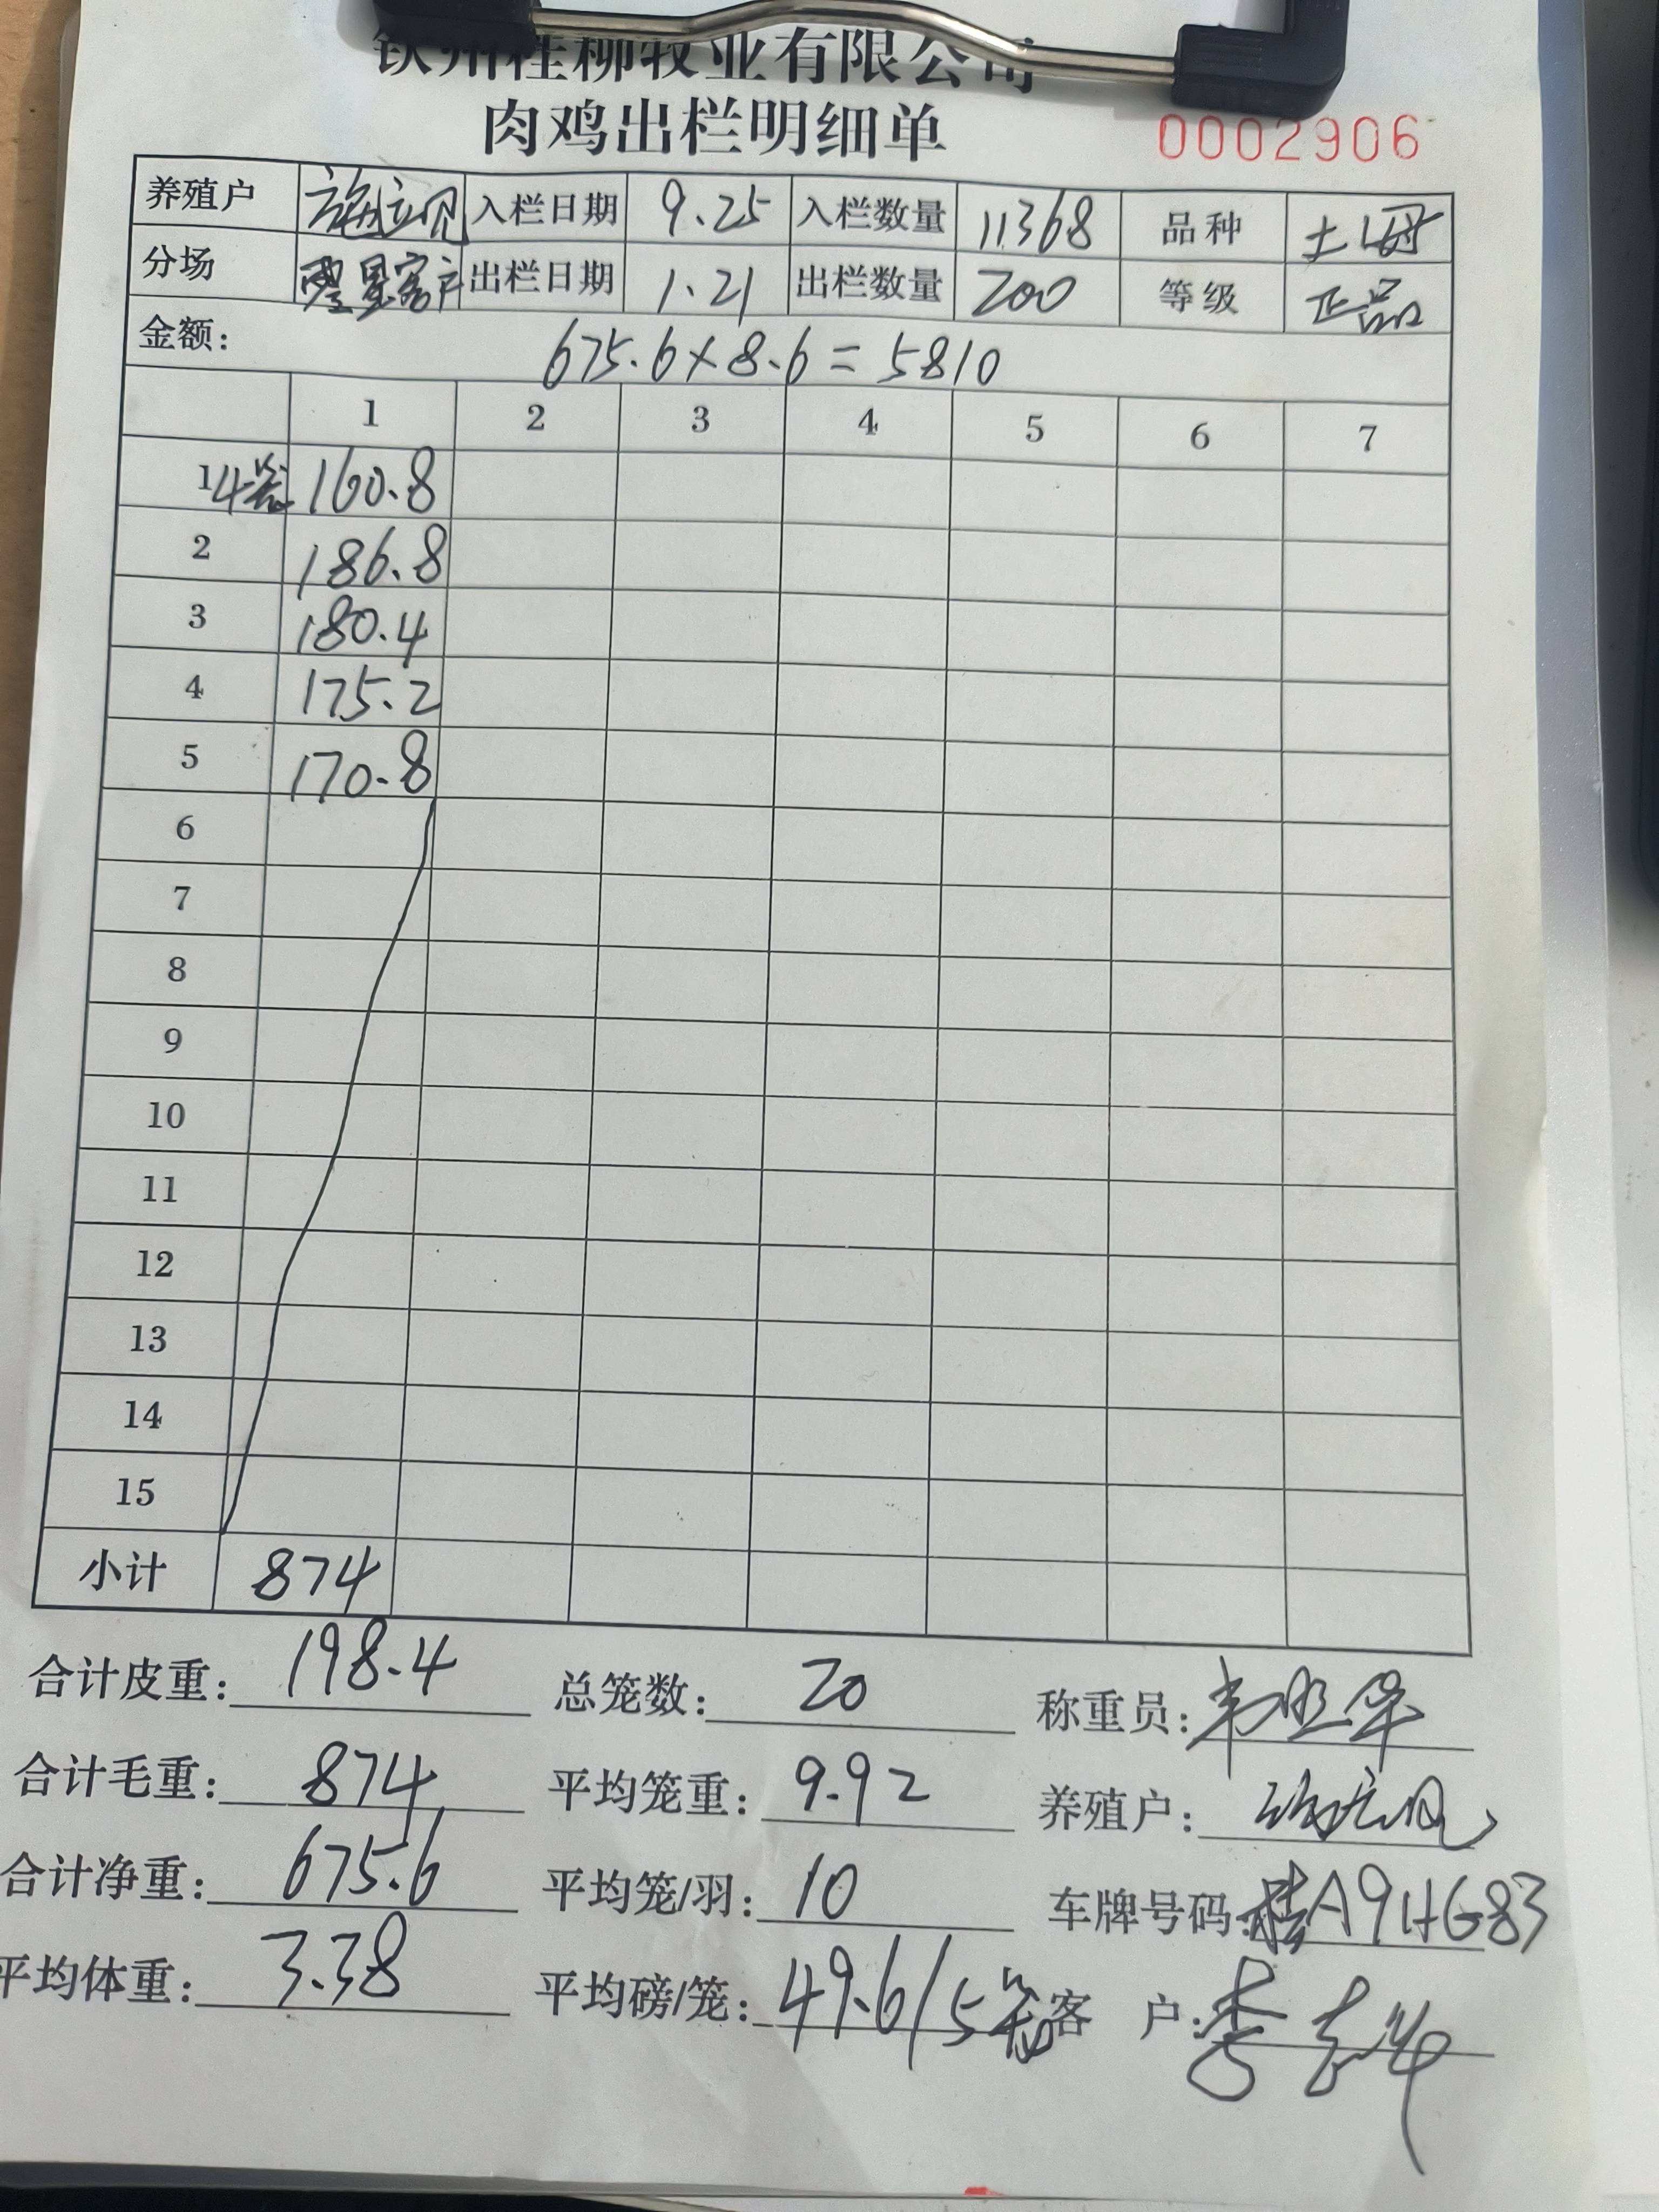 钦州桂柳牧业有限公司
肉鸡出栏明细单 0002906
养殖户 施立 入栏日期 9.25 入栏数量 11368 品种 土2母
分场 零星客户 出栏日期 1.21 出栏数量 200 等级 正品
金额： 675.6×8.6=5810
1 2 3 4 5 6 7
1 4笼 160.8
2 186.8
3 180.4
4 175.2
5 170.8
6
7
8
9
10
11
12
13
14
15
小计 874
合计皮重： 198.4 总笼数： 20 称重员：
合计毛重： 874 平均笼重： 9.92 养殖户：
合计净重： 675.6 平均笼/羽： 10 车牌号码： 桂A9HG83
平均体重： 3.38 平均磅/笼： 49.6/5笼 客 户： 李